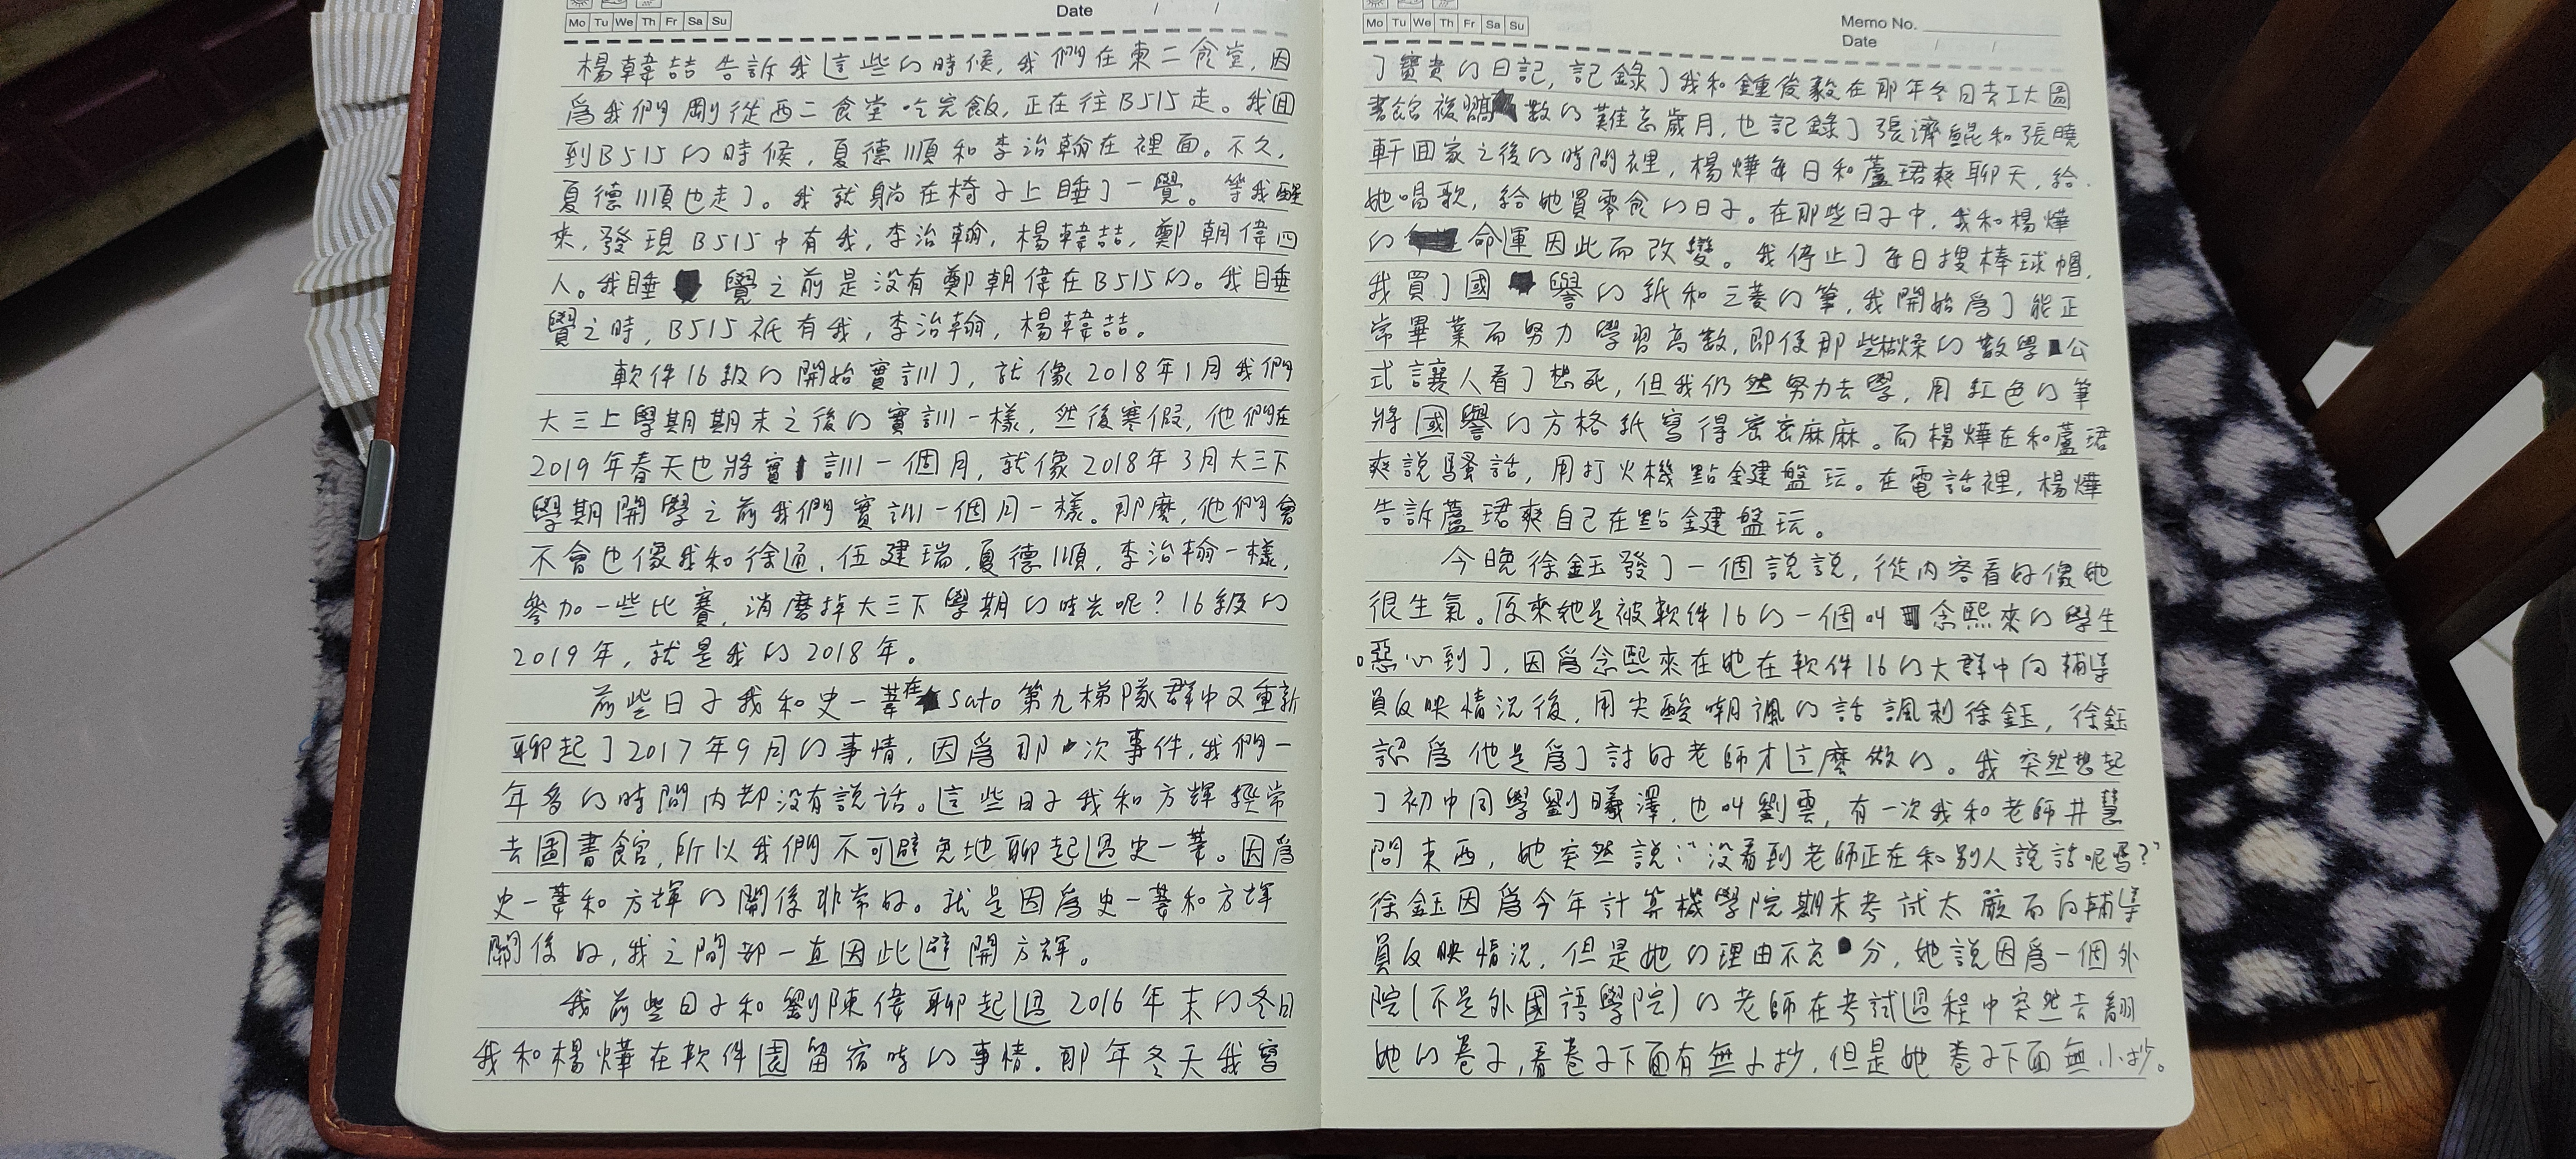 Mo Tu We Th Fr Sa Su
Date / /
楊韓喆告訴我這些的時候，我們在東二食堂，因
爲我們剛從西二食堂吃完飯，正在往B515走。我回
到B515的時候，夏德順和李治翰在裡面。不久，
夏德順也走了。我就躺在椅子上睡了一覺。等我醒
來，發現B515中有我，李治翰，楊韓喆，鄭朝偉四
人。我睡覺之前是没有鄭朝偉在B515的。我睡
覺之時，B515祇有我，李治翰，楊韓喆。
軟件16級的開始實訓了，就像2018年1月我們
大三上學期期末之後的實訓一樣，然後寒假，他們在
2019年春天也將實訓一個月，就像2018年3月大三下
學期開學之前我們實訓一個月一樣。那麽，他們會
不會也像我和徐通，伍建瑞，夏德順，李治翰一樣，
參加一些比賽，消磨掉大三下學期的時光呢？16級的
2019年，就是我的2018年。
前些日子我和史一葦在Sato第九梯隊群中又重新
聊起了2017年9月的事情，因爲那次事件，我們一
年多的時間内都没有説話。這些日子我和方輝經常
去圖書館，所以我們不可避免地聊起過史一葦。因爲
史一葦和方輝的關係非常好。就是因爲史一葦和方輝
關係好，我之間都一直因此避開方輝。
我前些日子和劉陳偉聊起過2016年末的冬日
我和楊燁在軟件園留宿時的事情。那年冬天我寫
Mo Tu We Th Fr Sa Su
Memo No.
Date / /
了寶貴的日記，記錄了我和鍾俊毅在那年冬日去工大圖
書館複習高數的難忘歲月，也記錄了張濟鯤和張曉
軒回家之後的時間裡，楊燁每日和蘆珺爽聊天，給
她唱歌，給她買零食的日子。在那些日子中，我和楊燁
的命運因此而改變。我停止了每日搜棒球帽，
我買了國譽的紙和三菱的筆，我開始爲了能正
常畢業而努力學習高數，即使那些枯燥的數學公
式讓人看了想死，但我仍然努力去學，用紅色的筆
將國譽的方格紙寫得密密麻麻。而楊燁在和蘆珺
爽説騷話，用打火機點鍵盤玩。在電話裡，楊燁
告訴蘆珺爽自己在點鍵盤玩。
今晚徐鈺發了一個説説，從内容看好像她
很生氣。原來她是被軟件16的一個叫念熙來的學生
惡心到了，因爲念熙來在她在軟件16的大群中向輔導
員反映情況後，用尖酸嘲諷的話諷刺徐鈺，徐鈺
認爲他是爲了討好老師才這麽做的。我突然想起
了初中同學劉曦澤，也叫劉雲，有一次我和老師井慧
問東西，她突然説：“没看到老師正在和别人説話呢嗎？”
徐鈺因爲今年計算機學院期末考試太嚴而向輔導
員反映情況，但是她的理由不充分，她説因爲一個外
院（不是外國語學院）的老師在考試過程中突然去翻
她的卷子，看卷子下面有無小抄，但是她卷子下面無小抄。